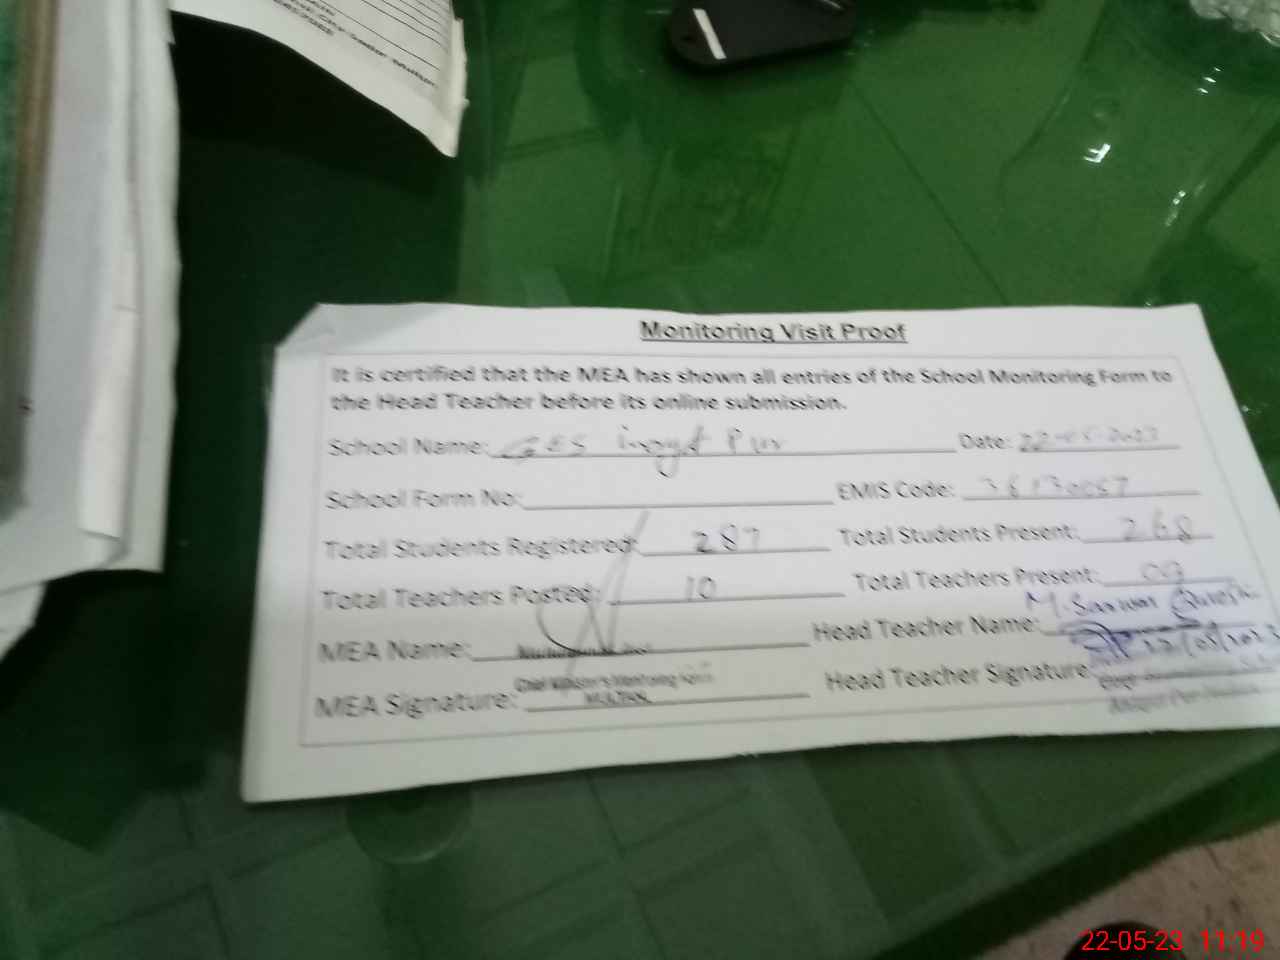 Sadar Multan
Monitoring Visit Proof
It is certified that the MEA has shown all entries of the School Monitoring Form to
the Head Teacher before its online submission.
School Name: GES Pur Date: 22-05-2023
School Form No: EMIS Code:
Total Students Registered: 287 Total Students Present: 268
Total Teachers Posted: 10 Total Teachers Present: 09
MEA Name: Head Teacher Name: M. Sarwar Qureshi
22/05/2023
MEA Signature: Chief Minister's Monitoring Force Head Teacher Signature:
MULTAN
22-05-23 11:19